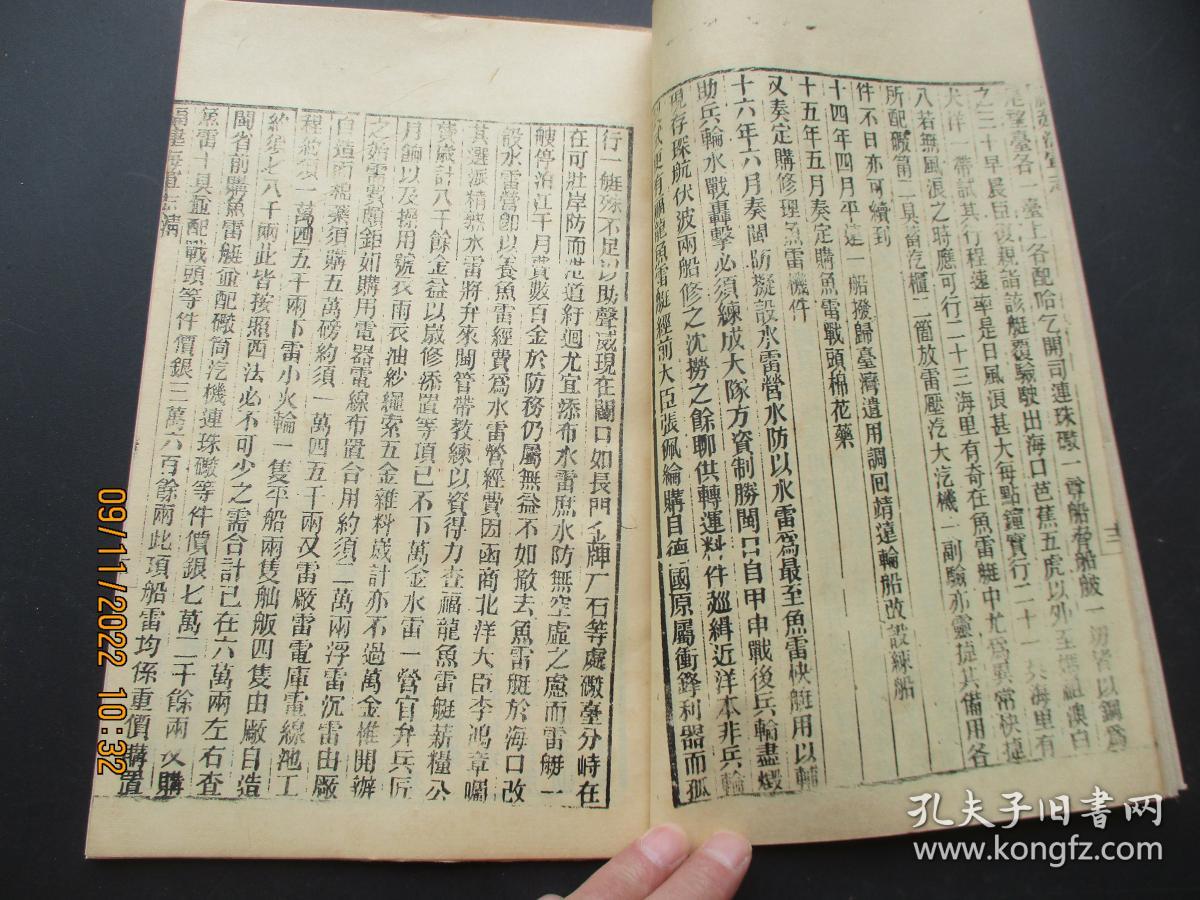 尾礮臺各一臺上各配哈乞開司連珠礮一尊船存船艘一切皆以鋼爲
之三十早晨臣復親詣該艇覆驗駛出海口芭蕉五虎以外至
犬洋一帶試其行程速率是日風浪甚大每點鐘實行二十 海里有
八若無風浪之時應可行二十三海里有奇在魚雷艇中尤爲異常快捷
所配礮筩二具蓄汽櫃二箇放雷壓汽大汽機一副驗亦靈捷其備用各
件不日亦可續到
十四年四月平遠一船撥歸臺濟遣用調回靖遠輪船改設練船
十五年五月奏定購魚雷戰頭棉花藥
又奏定購修理魚雷機件
十六年六月奏閩防擬設水雷營水防以水雷爲最至魚雷快艇用以輔
助兵輪水戰轟擊必須練成大隊方資制勝閩口自甲申戰後兵輪盡燬
現存琛航伏波兩船修之沈撈之餘聊供轉運料件巡緝近洋本非兵輪
更有福龍魚雷艇經前大臣張佩綸購自德國原屬衝鋒利器而孤
行一艇殊不足以助聲威現在閩口如長門金牌广石等處礮臺分峙在
在可壯岸防而港道紆迴尤宜添布水雷庶水防無空虛之慮而雷艇一
艘停泊江干月費數百金於防務仍屬無益不如撤去魚雷艇於海口改
設水雷營卽以養魚雷經費爲水雷營經費因函商北洋大臣李鴻章囑
其選派精熟水雷將弁來閩管帶教練以資得力查福龍魚雷艇薪糧公
費歲計八千餘金益以歲修添置等項已不下萬金水雷一營官弁兵匠
月餉以及操用號衣雨衣油紗繩索五金雜料歲計亦不過萬金惟開辦
之始需費頗鉅如購用電器電線布置合用約須二萬兩浮雷沉雷由廠
自造 棉藥須購五萬磅約須一萬四五千兩又雷廠雷電庫電線池工
程約須一萬四五千兩下雷小火輪一隻平船兩隻舢舨四隻由廠自造
約須七八千兩此皆按照西法必不可少之需合計已在六萬兩左右查
閩省前購魚雷艇並配礮筒汽機連珠礮等件價銀七萬二千餘兩又購
魚雷十具並配戰頭等件價銀三萬六百餘兩此項船雷均係重價購置
09/11/2022 10:32
孔夫子旧书网
www.kongfz.com